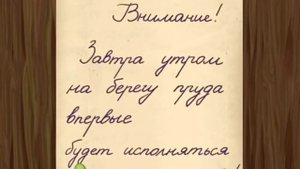 Внимание!
Завтра утром
на берегу пруда
впервые
будет исполняться